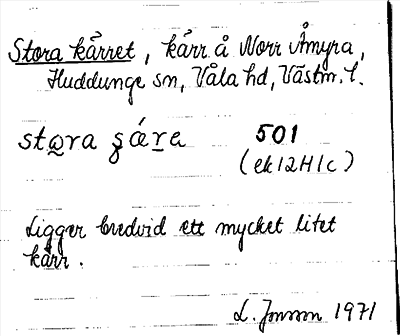 Stora kärret, kärr å Norr Åmyra,
Huddunge sn, Våla hd, Västm. l.
stora 501
(ek 12H1c)
Ligger bredvid ett mycket litet
kärr.
L. Jonsson 1971